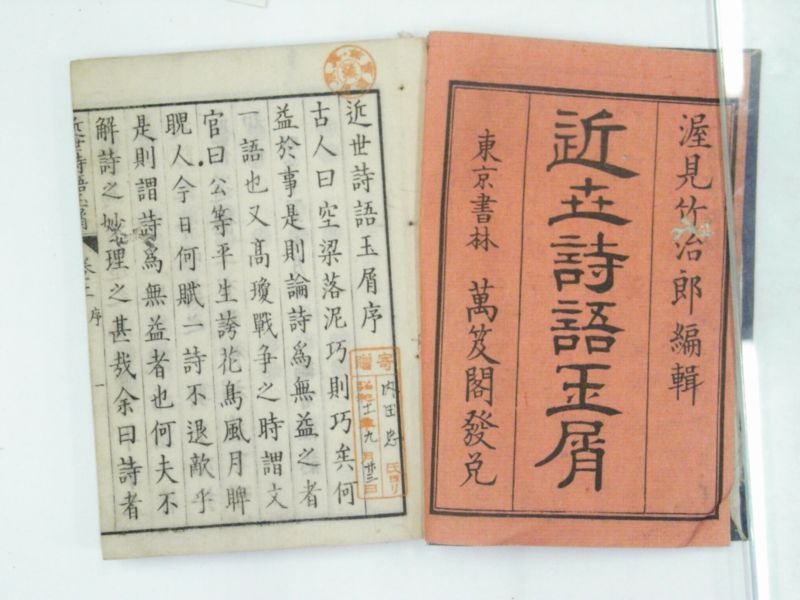 渥見竹治郎編輯
近世詩語玉屑
東京書林 萬笈閣發兌
近世詩語玉屑序
古人曰空梁落泥巧則巧矣何
益於事是則論詩爲無益之者
一語也又高瓊戰争之時謂文
官曰公等平生誇花鳥風月睥
睨人今日何賦一詩不退敵乎
是則謂詩爲無益者也何夫不
解詩之妙理之甚哉余曰詩者
近世詩語玉屑 序 一
寄贈
昭和十一年九月廿三日